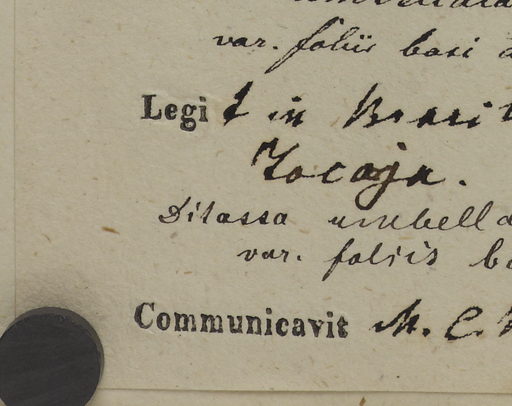 var. foliis basi
Legit in Brasil
Tocaja.
Ditassa umbella
var. foliis b
Communicavit M. C.